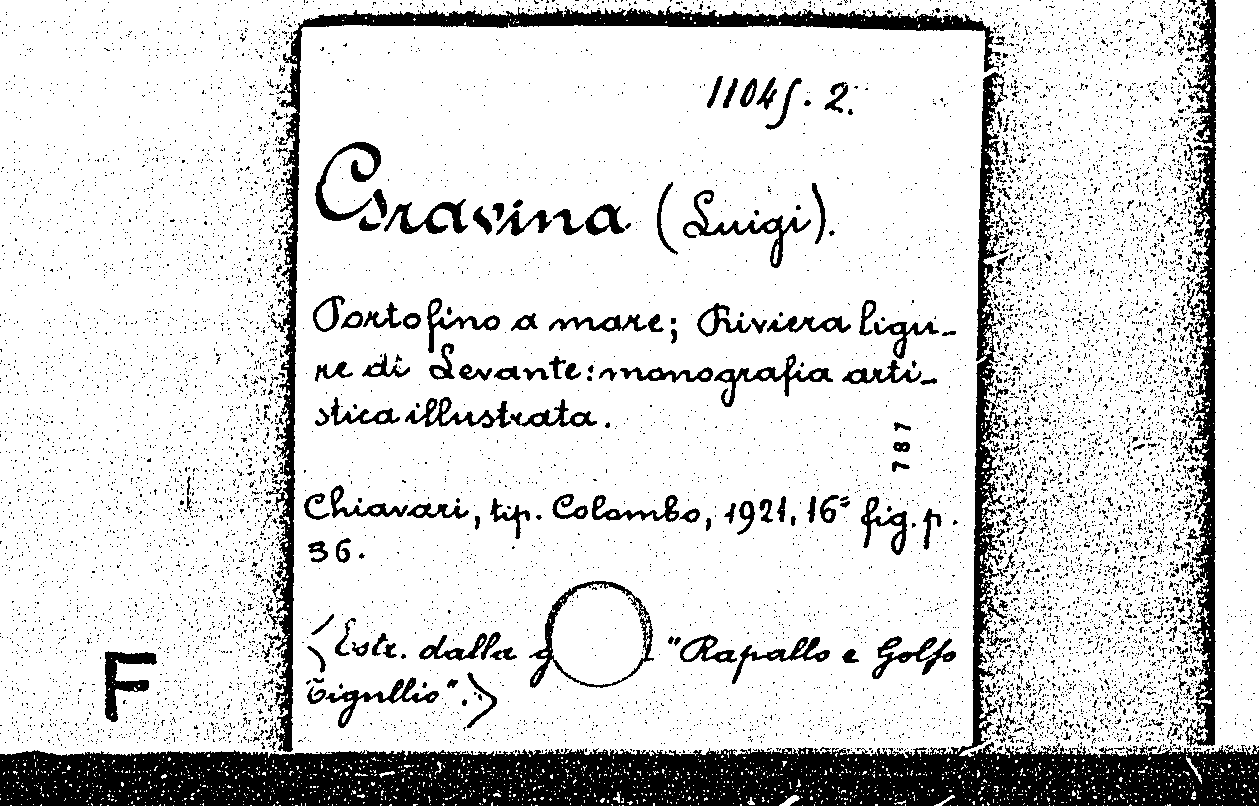 11045. 2.
Gravina (Luigi).
Portofino a mare; Riviera ligu-
re di Levante: monografia arti-
stica illustrata.
787
Chiavari, tip. Colombo, 1921, 16º fig. p.
36.
<Estr. dalla "Rapallo e Golfo
Tigullio".>
F